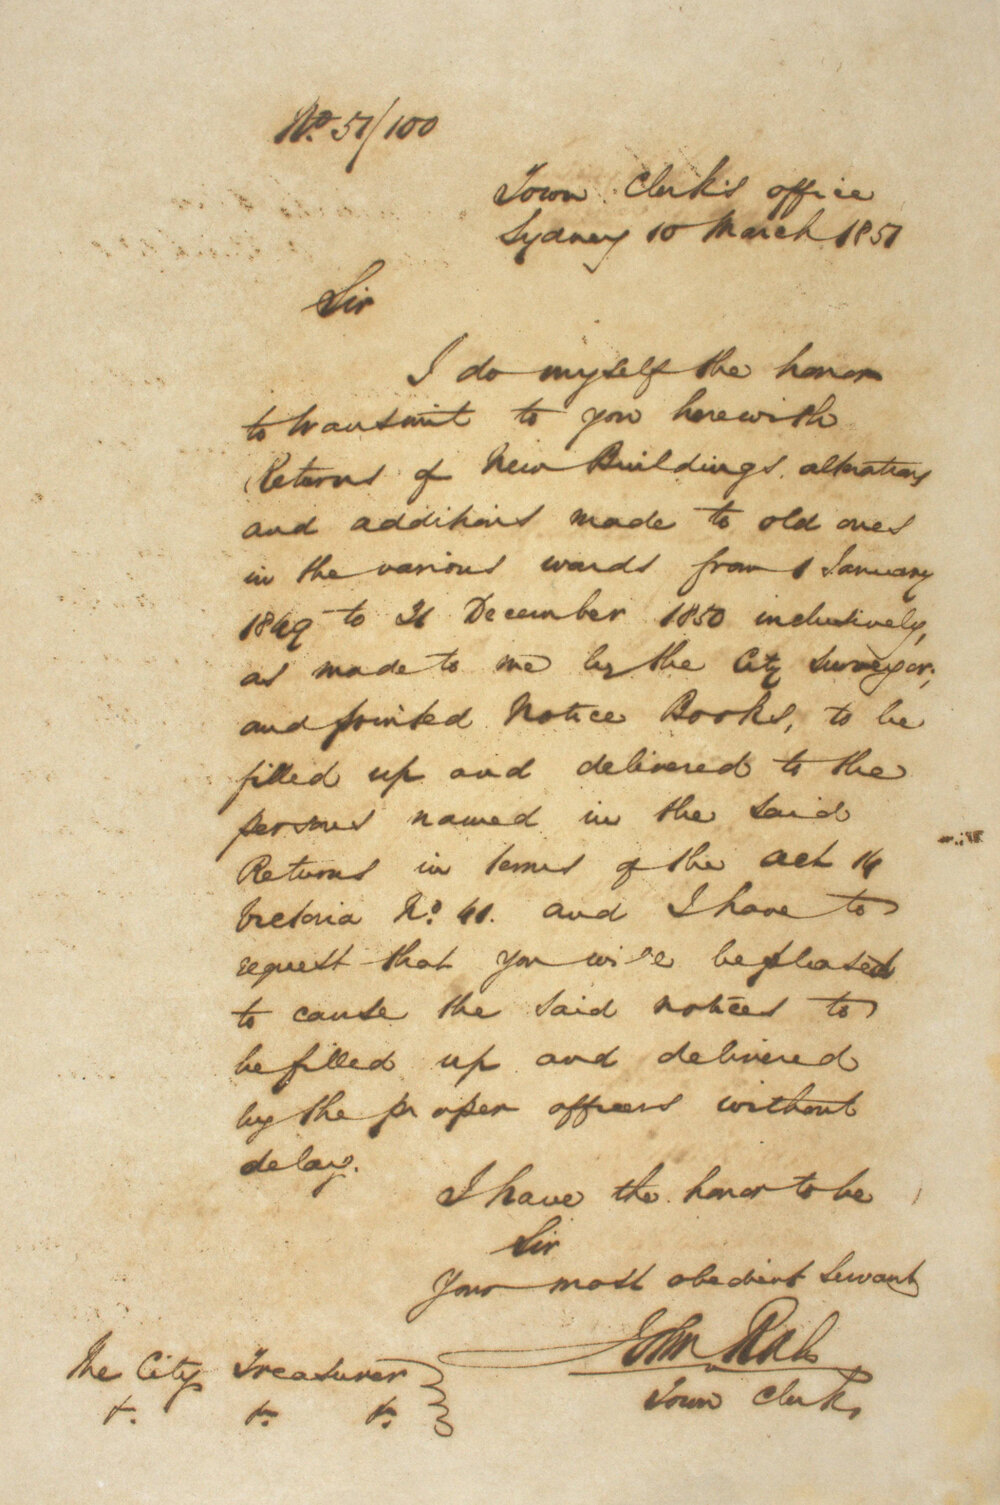 No. 51/100
Town Clerk's office
Sydney 10 March 1851
Sir
I do myself the honor
to transmit to you herewith
Returns of New Buildings, alterations
and additions made to old ones
in the various wards from 1 January
1849 to 31 December 1850 inclusively,
as made to me by the City Surveyor;
and printed Notice Books, to be
filled up and delivered to the
persons named in the said
Returns in terms of the act 14
Victoria No. 41. and I have to
request that you will be pleased
to cause the said notices to
be filled up and delivered
by the proper officers without
delay.
I have the honor to be
Sir
Your most obedient Servant
John Rae
Town Clerk
The City Treasurer
&. &. &.